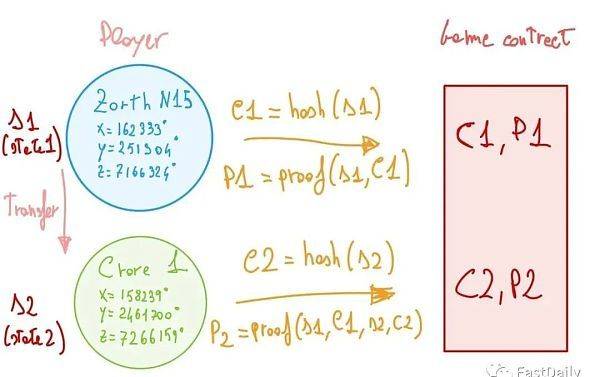 Player
Game contract
Zorth N15
X=162333°
Y=251304°
Z=7166324°
s1
(state1)
C1 = hash(s1)
P1 = proof(s1, C1)
C1, P1
Transfer
Crore 1
X=158239°
Y=2461700°
Z=7266159°
s2
(state2)
C2 = hash(s2)
P2 = proof(s1, C1, s2, C2)
C2, P2
FastDaily